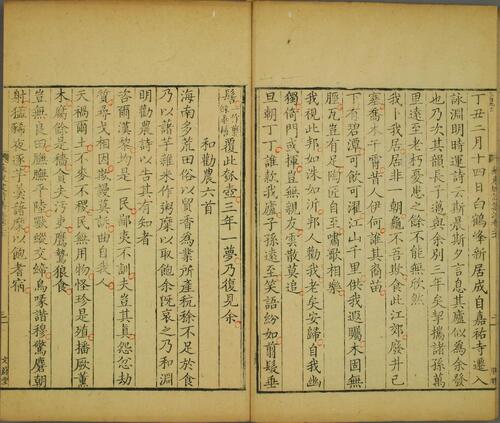 丁丑二月十四日白鶴峰新居成自嘉祐寺遷入
詠淵明時運詩云斯晨斯夕言息其廬似為余發
也乃次其韻長子邁與余別三年矣挈攜諸孫萬
里遠至老朽憂患之餘不能無欣然
我卜我居居非一朝龜不吾欺食此江郊廢井已
塞喬木干霄昔人伊何誰其裔苗
下有碧潭可飲可濯江山千里供我遐矚木固無
脛瓦豈有足陶匠自至嘯歌相樂
我視此邦如洙如沂邦人勸我老矣安歸自我幽
獨倚門或揮豈無親友雲散莫追
旦朝丁丁誰款我廬子孫遠至笑語紛如剪髮垂
髫覆此瓠壺三年一夢乃復見余
和勸農六首
海南多荒田俗以貿香為業所產秔稌不足於食
乃以藷芋雜米作粥糜以取飽余既哀之乃和淵
明勸農詩以告其有知者
咨爾漢黎均是一民鄙夷不訓夫豈其真怨忿劫
質尋戈相因欺謾莫訴曲自我人
天禍爾土不麥不稷民無用物怪珍是殖播厥薰
木腐餘是穡貪夫污吏鷹鷙狼食
豈無良田膴膴平陸獸蹤交締鳥喙諧穆驚麏朝
射猛豨夜逐芋羹藷糜以飽耆宿